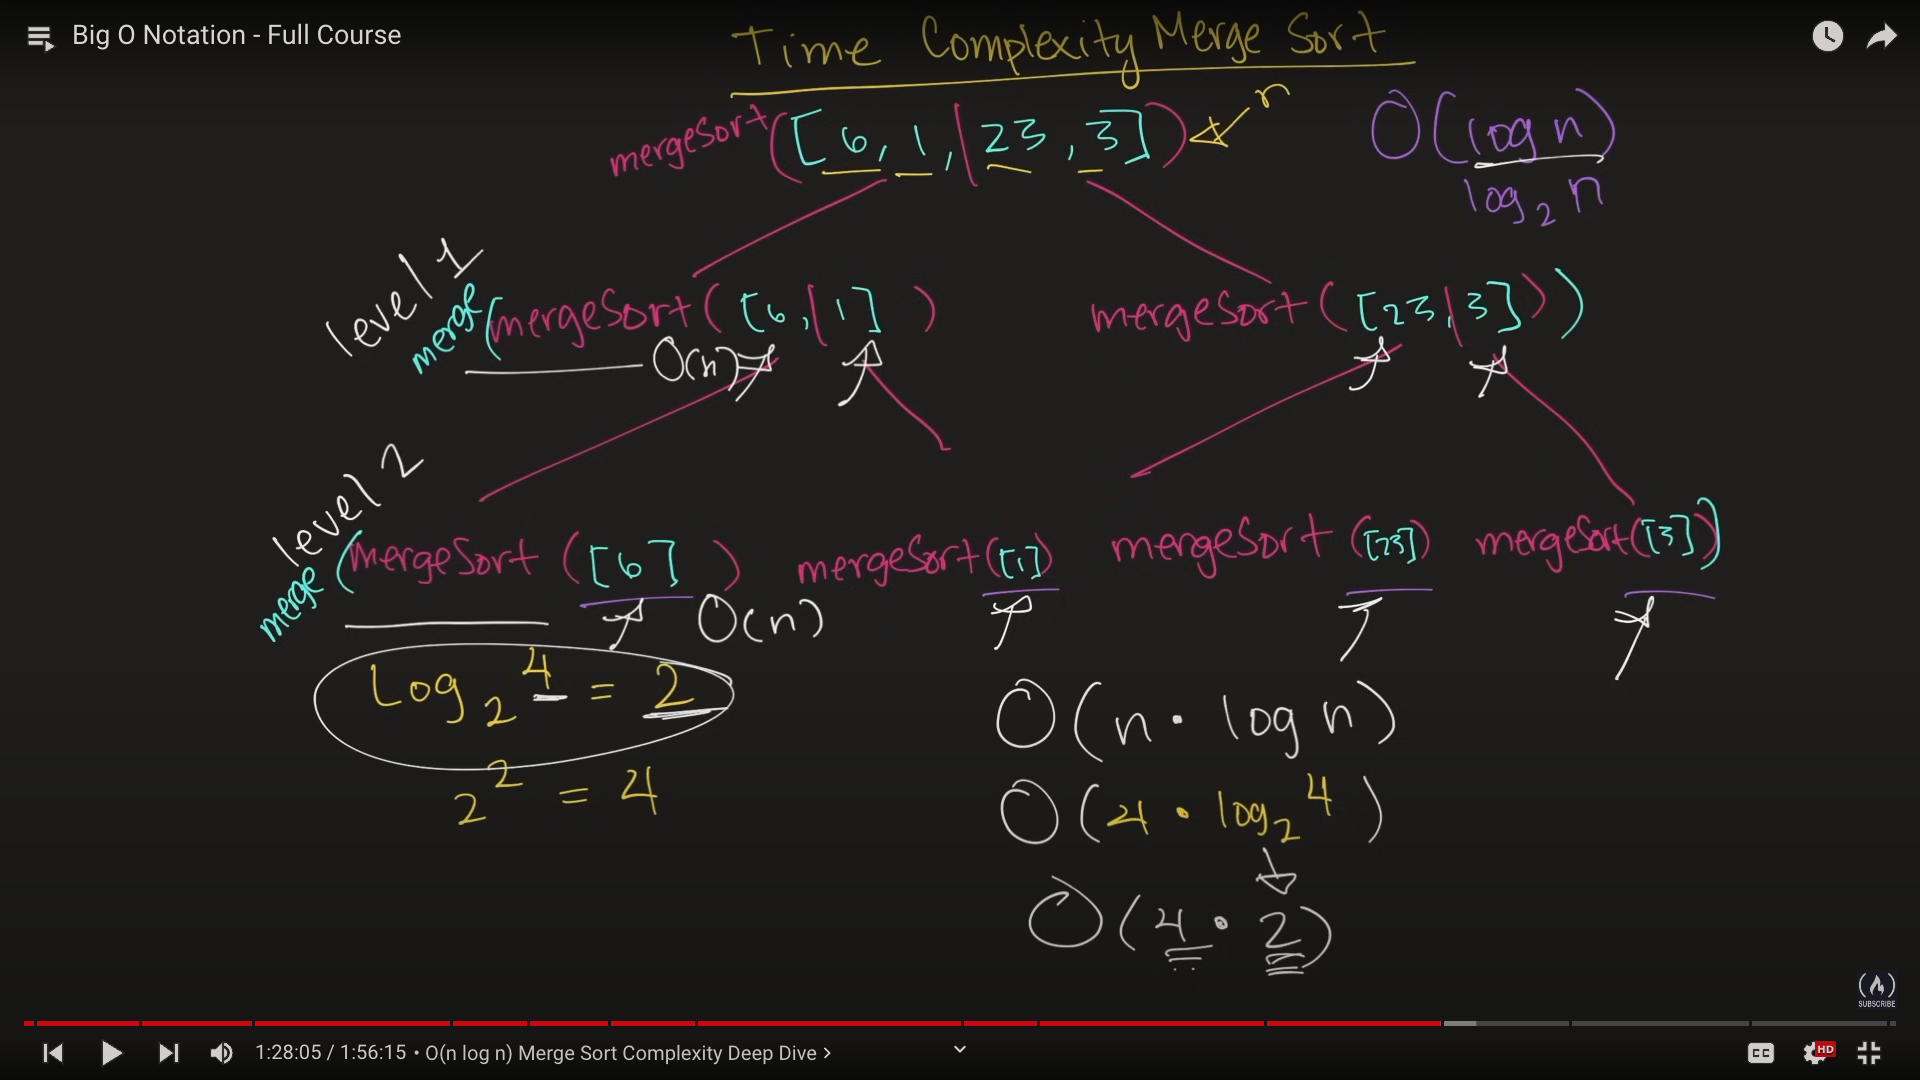 Big O Notation - Full Course
Time Complexity Merge Sort
mergeSort([6, 1, | 23, 3]) n
O(log n)
log₂ n
level 1
merge(mergeSort([6, | 1]) mergeSort([23 | 3]))
O(n)
level 2
merge(mergeSort([6]) mergeSort([1]) mergeSort([23]) mergeSort([3]))
O(n)
Log₂ 4 = 2
2² = 4
O(n · log n)
O(4 · log₂ 4)
O(4 · 2)
SUBSCRIBE
1:28:05 / 1:56:15 • O(n log n) Merge Sort Complexity Deep Dive
CC
HD